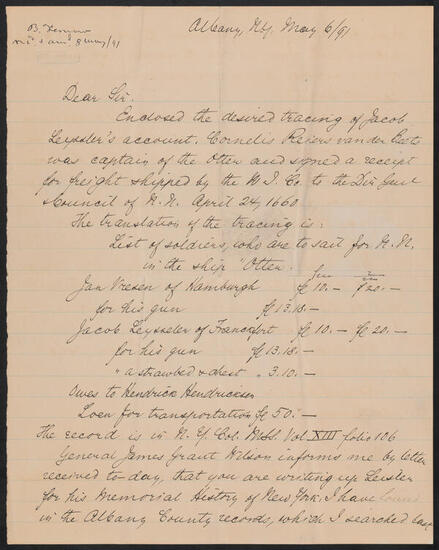 B. Fernow
& ans 8 May/91
Albany, N.Y. May 6/91
Dear Sir.
Enclosed the desired tracing of Jacob
Leyssler's account. Cornelis Reiers vander Beets
was captain of the Otter and signed a receipt
for freight shipped by the W. I. Co. to the Dir Genl
& Council of N. N. April 24, 1660.
The translation of the tracing is:
List of soldiers, who are to sail for N. N.
in the ship "Otter.
Jan Vresen of Hamburgh fl 10.- f 20.-
for his gun fl 13.18.-
Jacob Leysseler of Francfort fl 10.- fl 20.-
for his gun fl 13.18.-
" a strawbed & chest " 3.10.-
Owes to Hendrick Hendricksen
Loen for transportation fl 50.-
The record is in N. Y. Col. MSS. Vol XIII folio 106
General James Grant Wilson informs me by letter
received to day, that you are writing up Leisler
for his Memorial History of New York. I have found
in the Albany County records, which I searched last